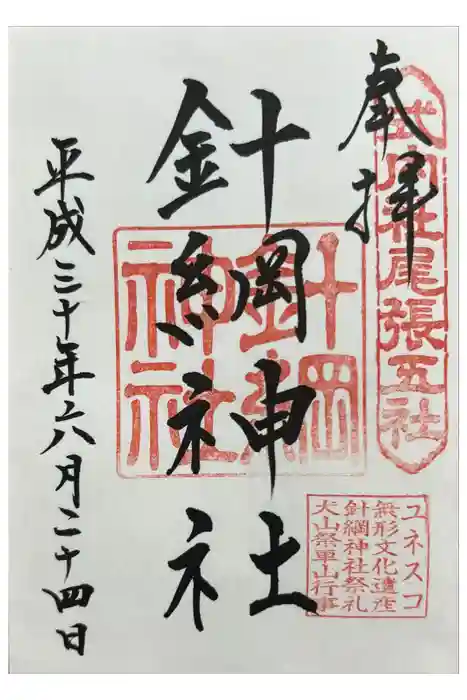 奉拝
式内社尾張五社
針綱神社
針綱神社
平成三十年六月二十四日
ユネスコ
無形文化遺産
針綱神社祭礼
犬山祭車山行事